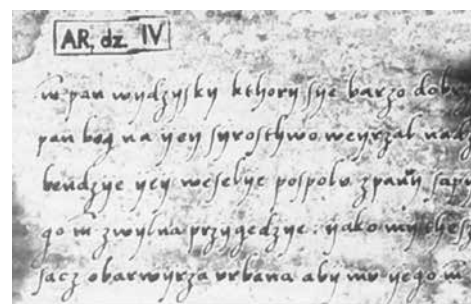 AR, dz. IV
m̃ pan wydzysky kthory sye barzo dobrz
pan bog na yey syrosthwo weyrzal nadz
bendzye yey weselye pospolv zpany sapy
go m̃ zwylna przygedzye : yako my thesz
sacz obarwyrza vrbana aby mv yego m̃